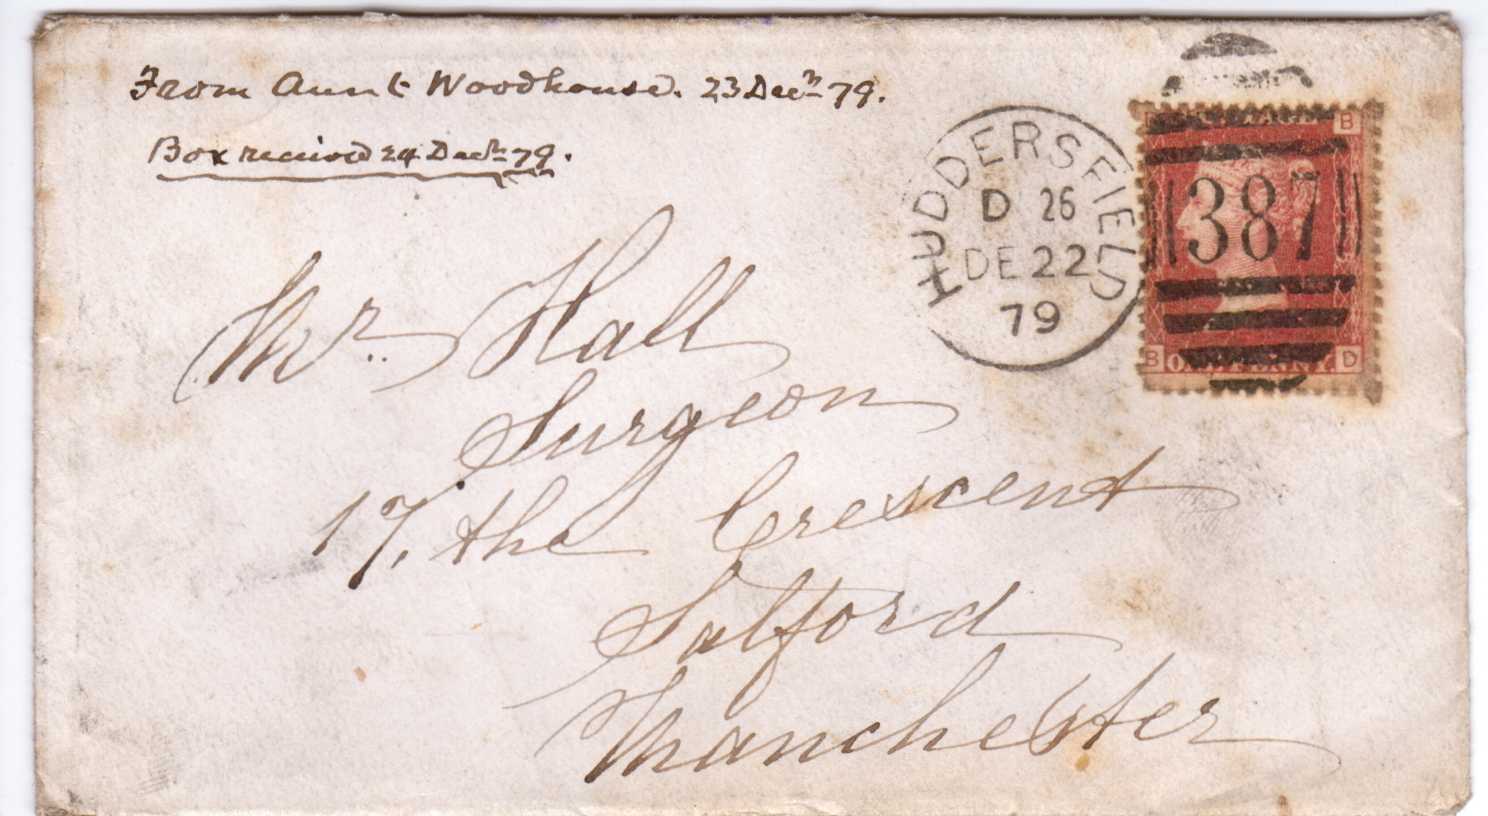 From Aunt Woodhouse. 23 Decr. 79.
Box received 24 Decr. 79.
HUDDERSFIELD
D 26
DE 22
79
B
387
B D
ONE PENNY
Mr. Hall
Surgeon
17, the Crescent
Salford
Manchester